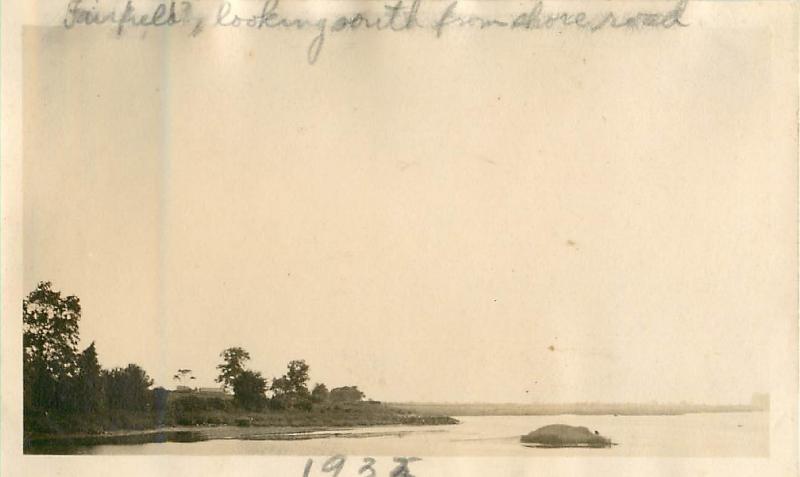 Fairfield?, looking south from shore road
193